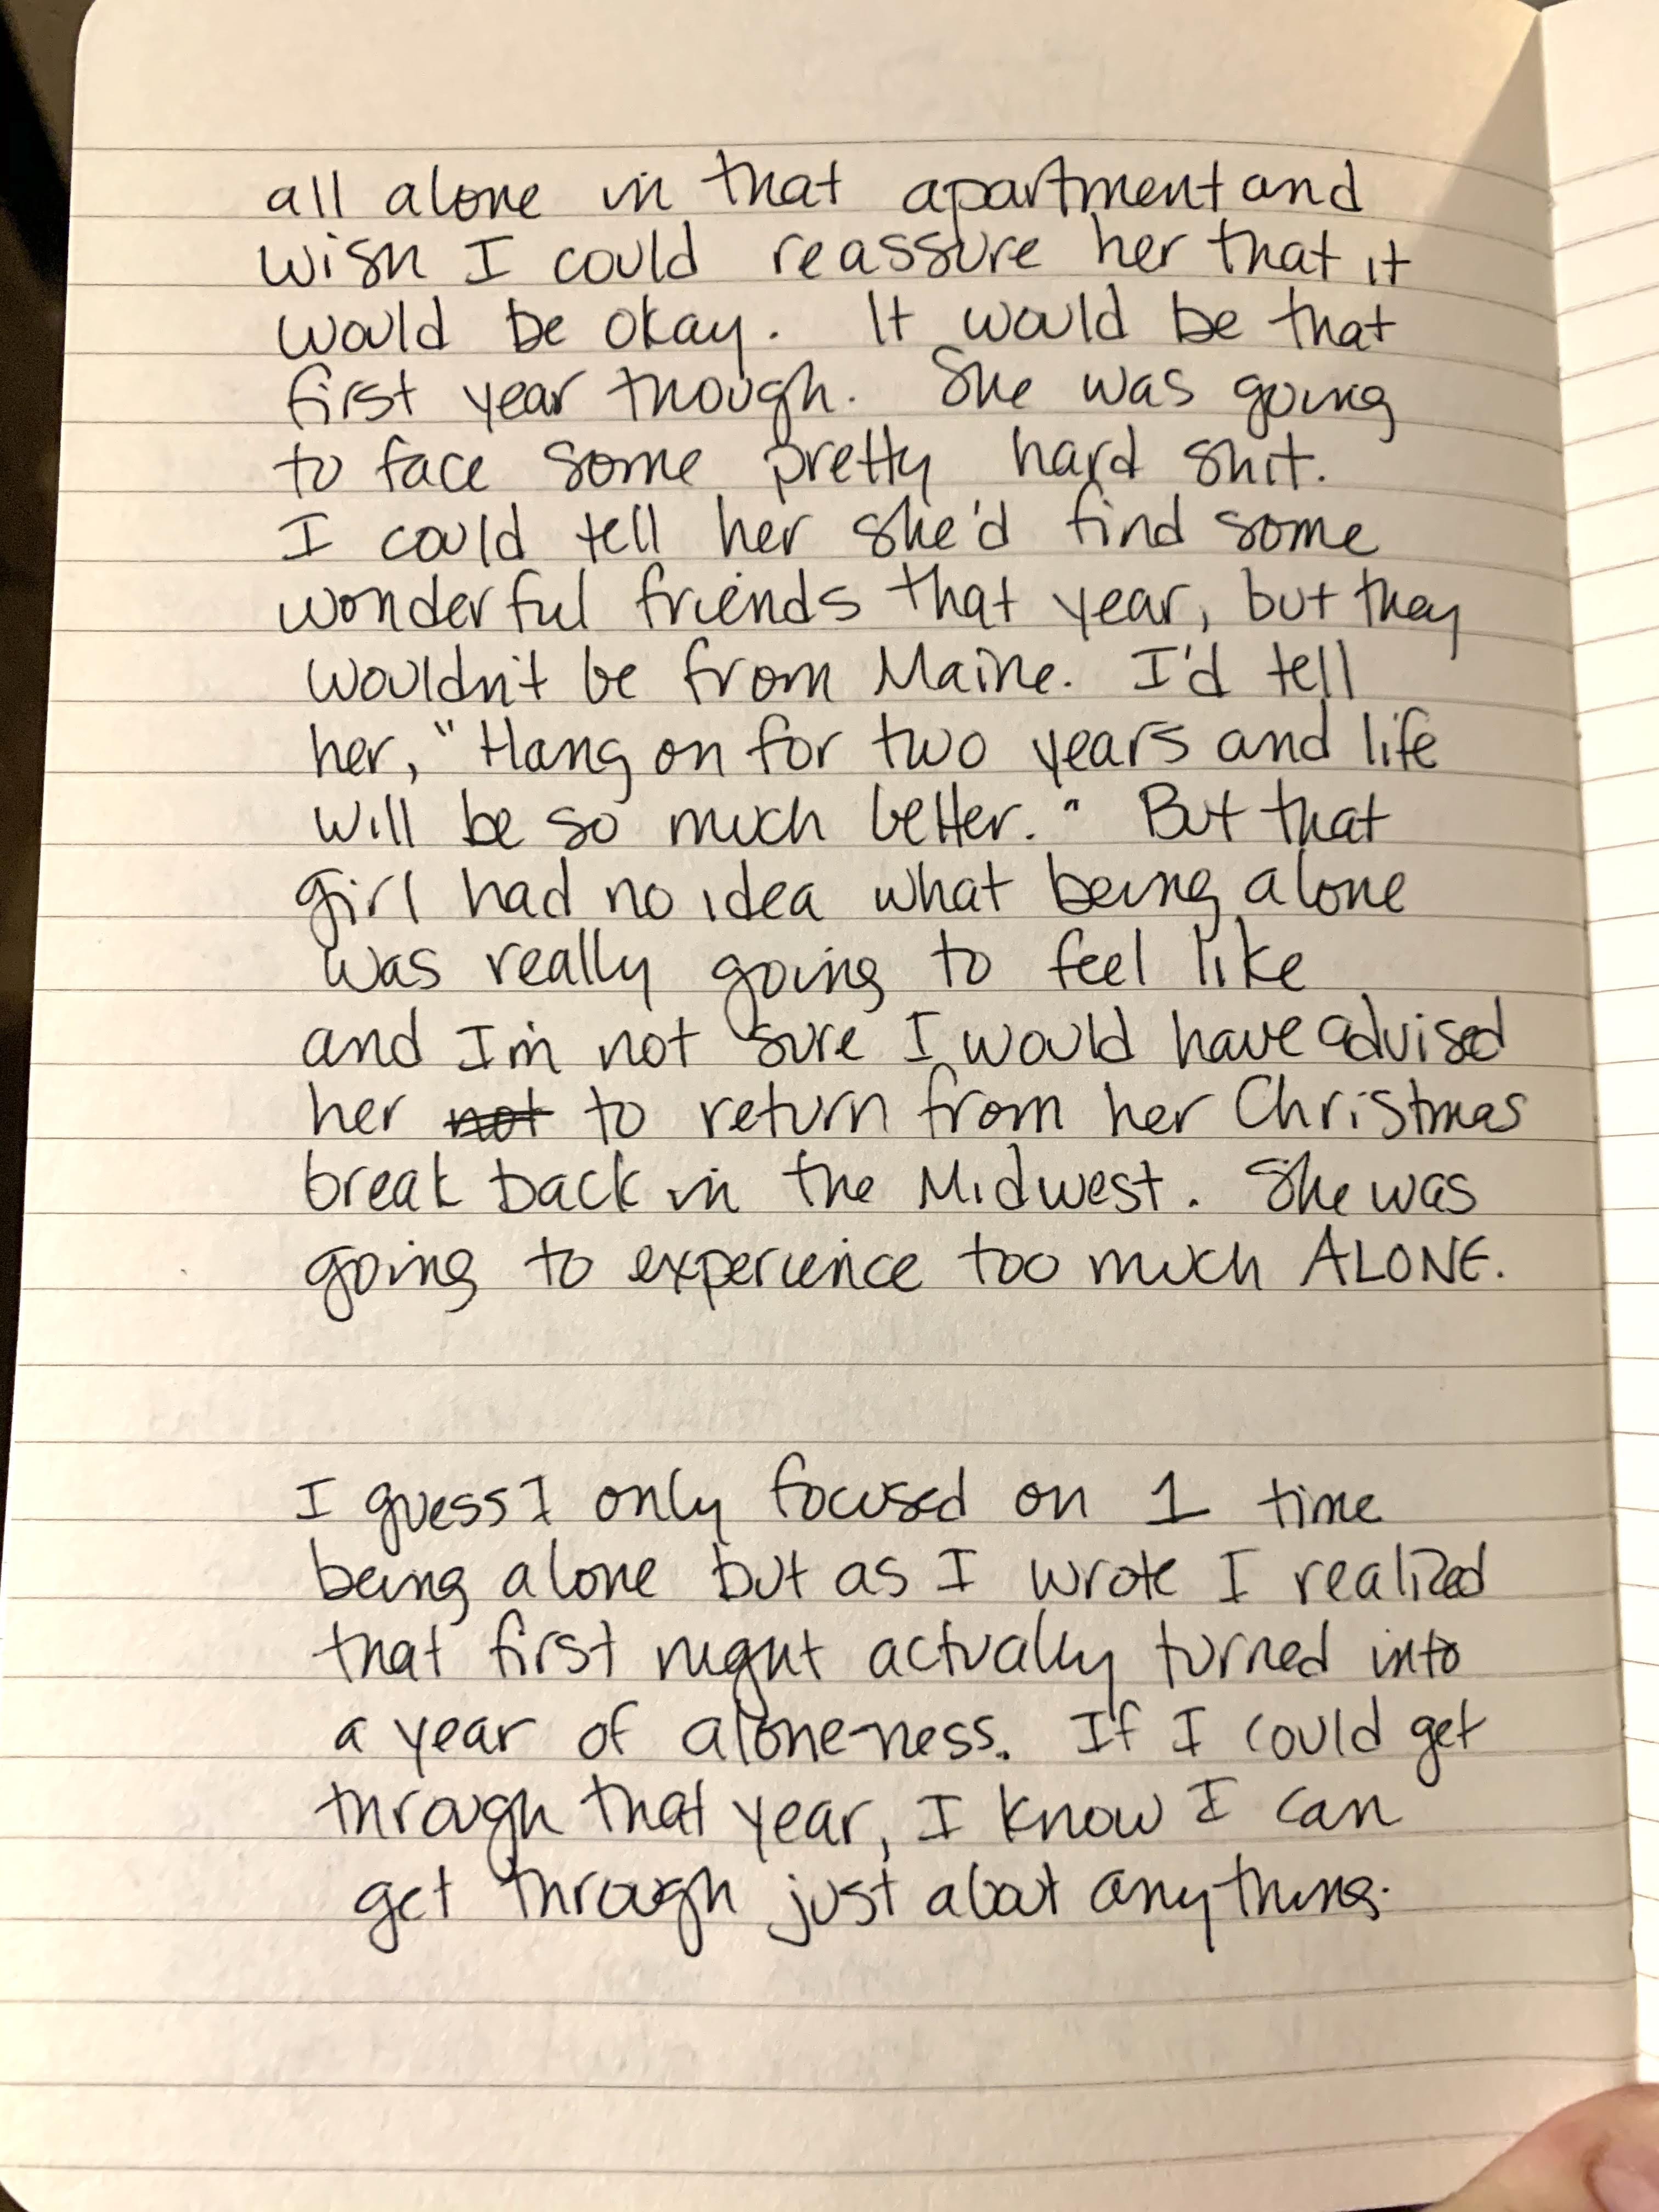 all alone in that apartment and
wish I could reassure her that it
would be okay. It would be that
first year though. She was going
to face some pretty hard shit.
I could tell her she'd find some
wonderful friends that year, but they
wouldn't be from Maine. I'd tell
her, "Hang on for two years and life
will be so much better." But that
girl had no idea what being alone
was really going to feel like
and I'm not sure I would have advised
her not to return from her Christmas
break back in the Midwest. She was
going to experience too much ALONE.
I guess I only focused on 1 time
being alone but as I wrote I realized
that first night actually turned into
a year of alone-ness. If I could get
through that year, I know I can
get through just about anything.